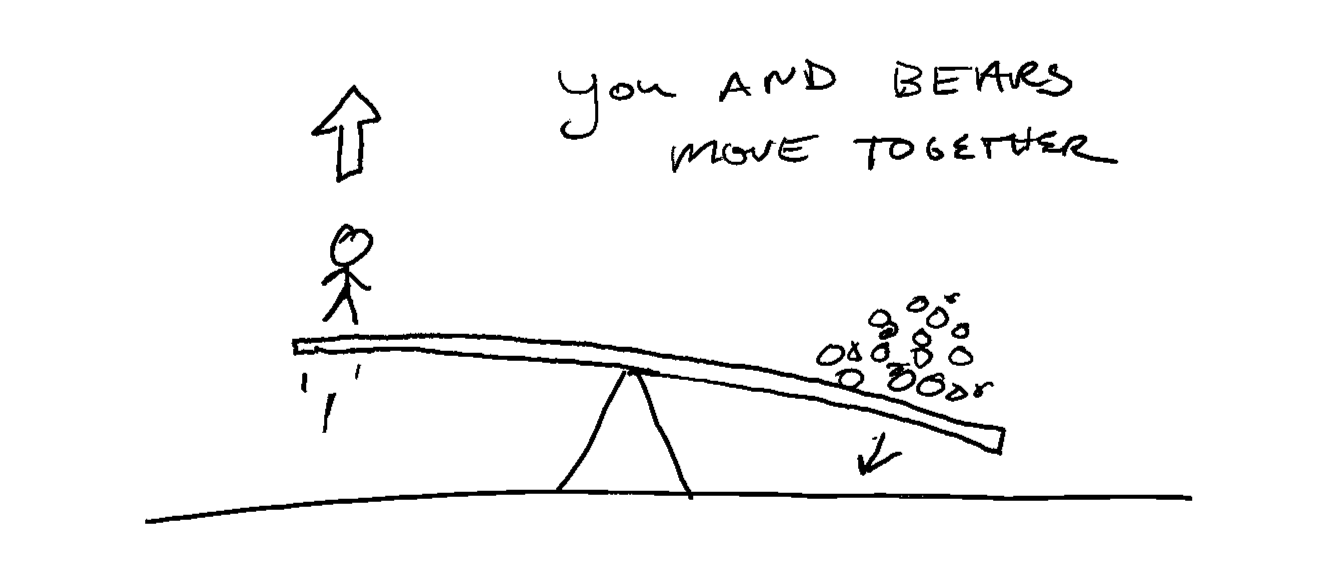 You AND BEARS
MOVE TOGETHER